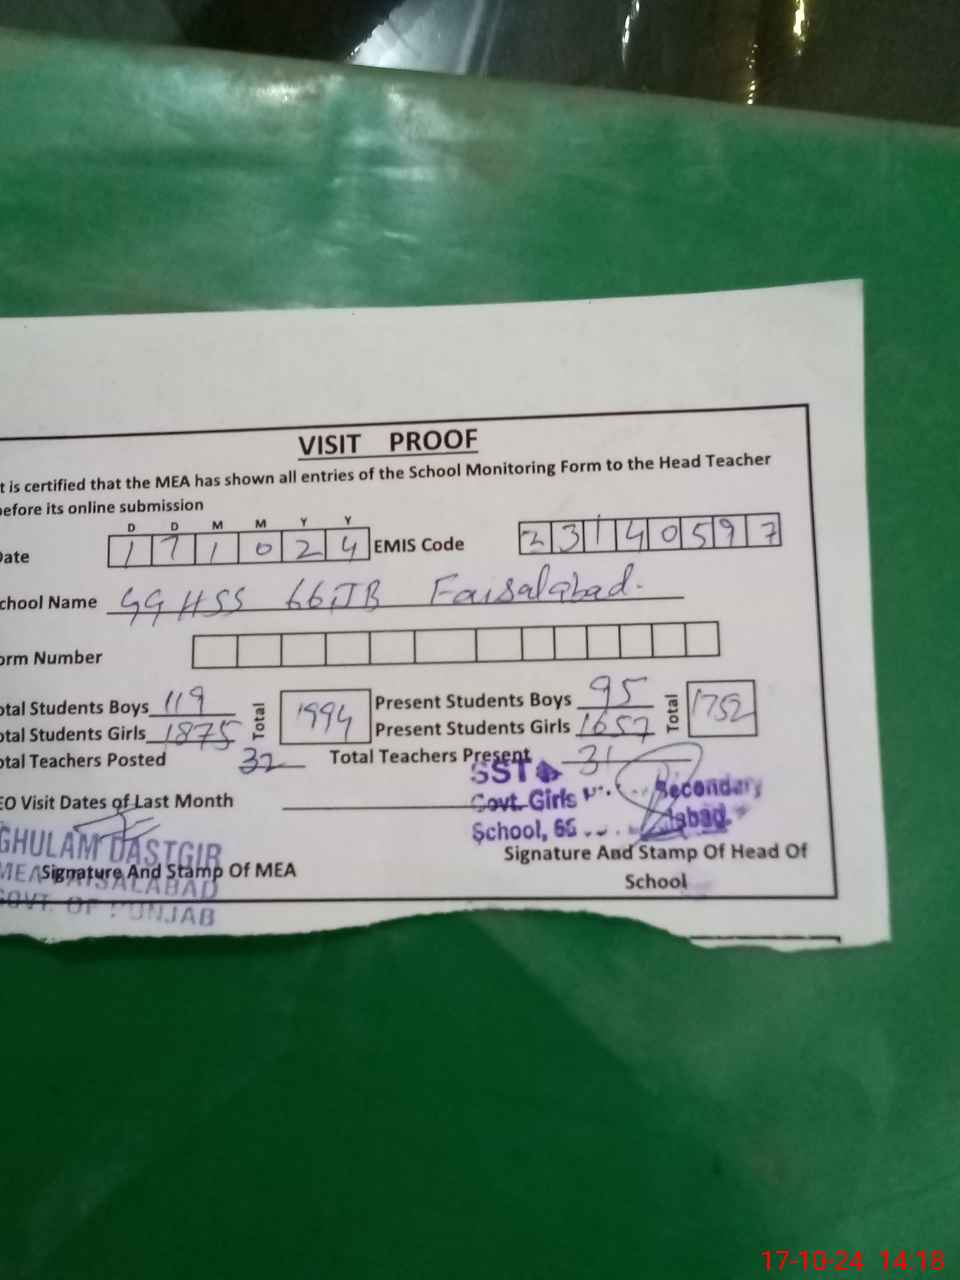 VISIT PROOF
t is certified that the MEA has shown all entries of the School Monitoring Form to the Head Teacher
efore its online submission
D D M M Y Y
ate 1 7 1 0 2 4 EMIS Code 2 3 1 4 0 5 9 7
chool Name GGHSS 66 JB Faisalabad.
orm Number
otal Students Boys 119 Total 1994 Present Students Boys 95 Total 1752
otal Students Girls 1875 Present Students Girls 1657
otal Teachers Posted 32 Total Teachers Present 31
SST
EO Visit Dates of Last Month
Govt. Girls Secondary
School, 66 abad.
GHULAM DASTGIR
MEA FAISALABAD
GOVT. OF PUNJAB
Signature And Stamp Of MEA
Signature And Stamp Of Head Of
School
17-10-24 14:18